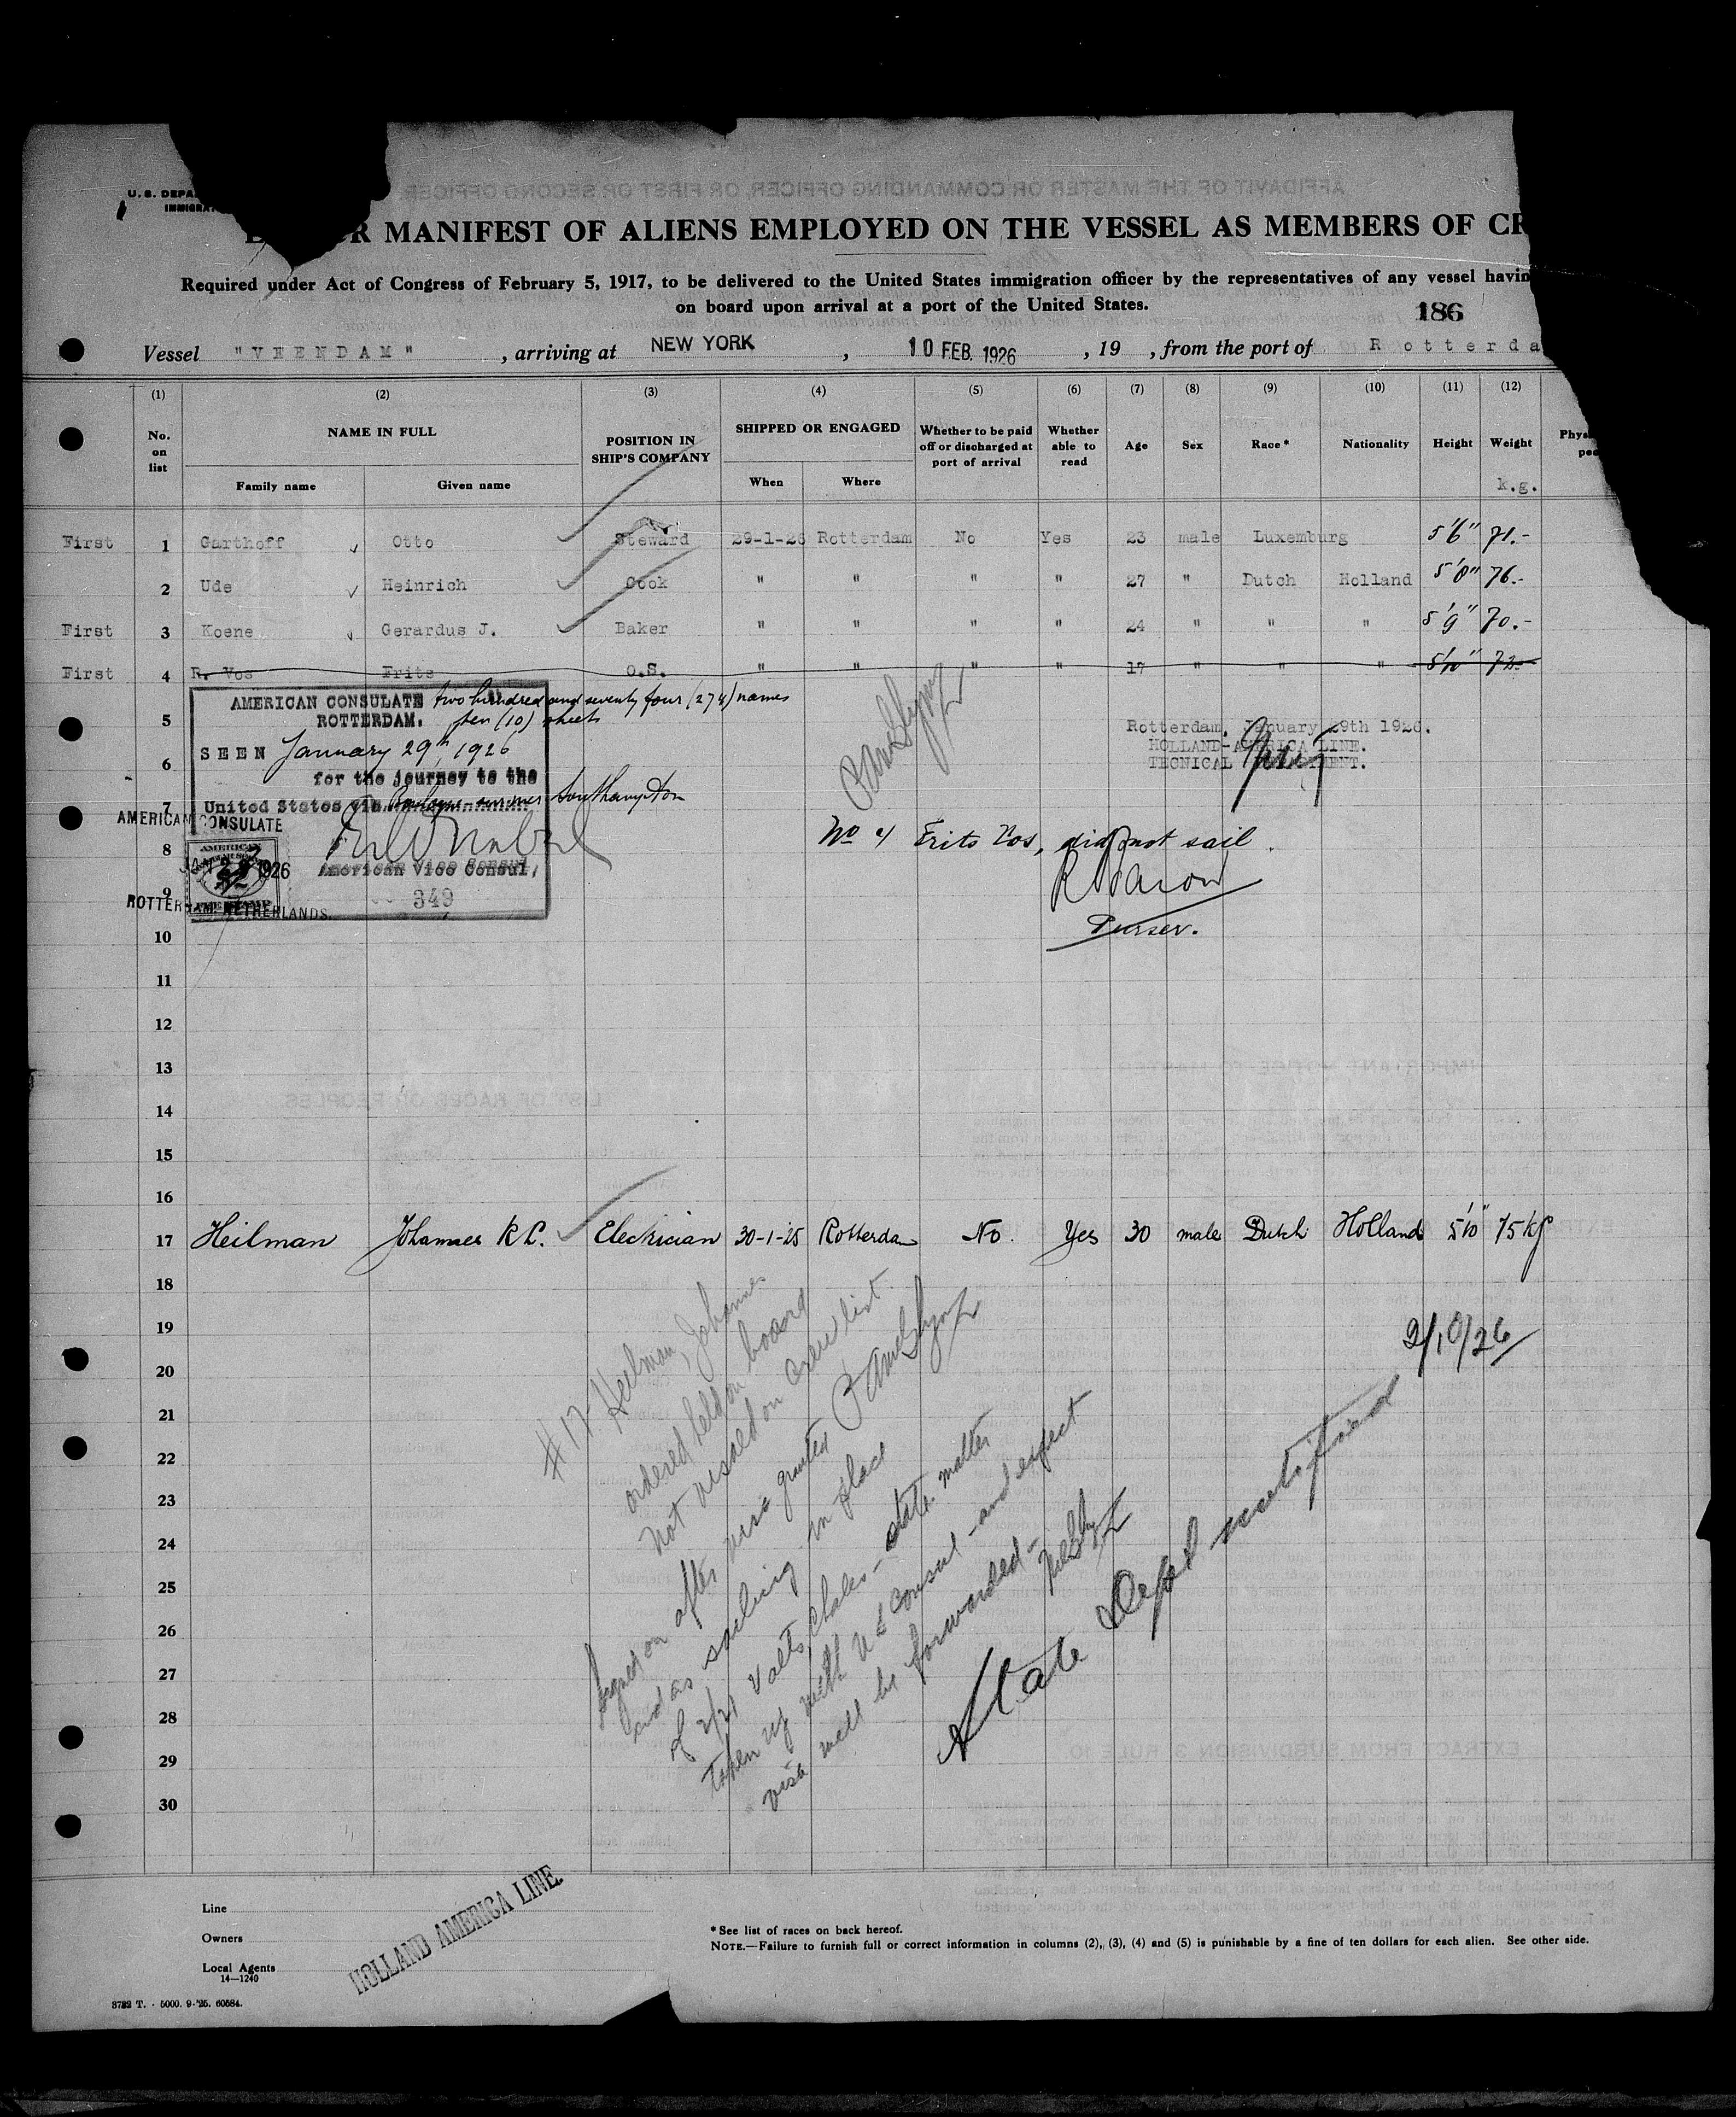 U. S. DEPA
IMMIGRA
R MANIFEST OF ALIENS EMPLOYED ON THE VESSEL AS MEMBERS OF CR
Required under Act of Congress of February 5, 1917, to be delivered to the United States immigration officer by the representatives of any vessel havin
on board upon arrival at a port of the United States.
186
Vessel "VEENDAM" , arriving at NEW YORK , 10 FEB. 1926 , 19 , from the port of Rotterda
(1) (2) (3) (4) (5) (6) (7) (8) (9) (10) (11) (12)
No. on list NAME IN FULL POSITION IN SHIP'S COMPANY SHIPPED OR ENGAGED Whether to be paid off or discharged at port of arrival Whether able to read Age Sex Race* Nationality Height Weight Phys
Family name Given name When Where k.g.
First 1 Garthoff Otto Steward 29-1-26 Rotterdam No Yes 23 male Luxemburg 5'6" 71.-
2 Ude Heinrich Cook " " " " 27 " Dutch Holland 5'8" 76.-
First 3 Koene Gerardus J. Baker " " " " 24 " " " 5'9" 70.-
First 4 R. Vos Frits O.S. " " " " 17 " " " 5'10" 72.-
AMERICAN CONSULATE two hundred and seventy four (274) names
ROTTERDAM. ten (10) sheets
5
Rotterdam, January 29th 1926.
HOLLAND-AMERICA LINE.
TECNICAL
SEEN January 29th, 1926
6
for the journey to the
United States via Boulogne sur mer Southampton
7
AMERICAN CONSULATE
No 4 Frits Vos, did not sail.
8
JAN 29 1926
American Vice Consul,
9
349
ROTTERDAM, NETHERLANDS.
Purser.
10
11
12
13
14
15
16
17 Heilman Johannes K L. Electrician 30-1-25 Rotterdam No. Yes 30 male Dutch Holland 5'10" 75 kg
18
19
2/10/26
20
21
22
23
24
25
26
27
28
29
30
#17- Heilman, Johannes
ordered held on board
not visaed on crew list.
Signed on after visa granted
and as sailing in place
taken up with U S Consul - and expect
visa will be forwarded -
State Dept notified
Line
Owners
Local Agents
HOLLAND AMERICA LINE.
14—1240
3722 T. - 5000. 9-'25. 60584.
* See list of races on back hereof.
NOTE.—Failure to furnish full or correct information in columns (2), (3), (4) and (5) is punishable by a fine of ten dollars for each alien. See other side.